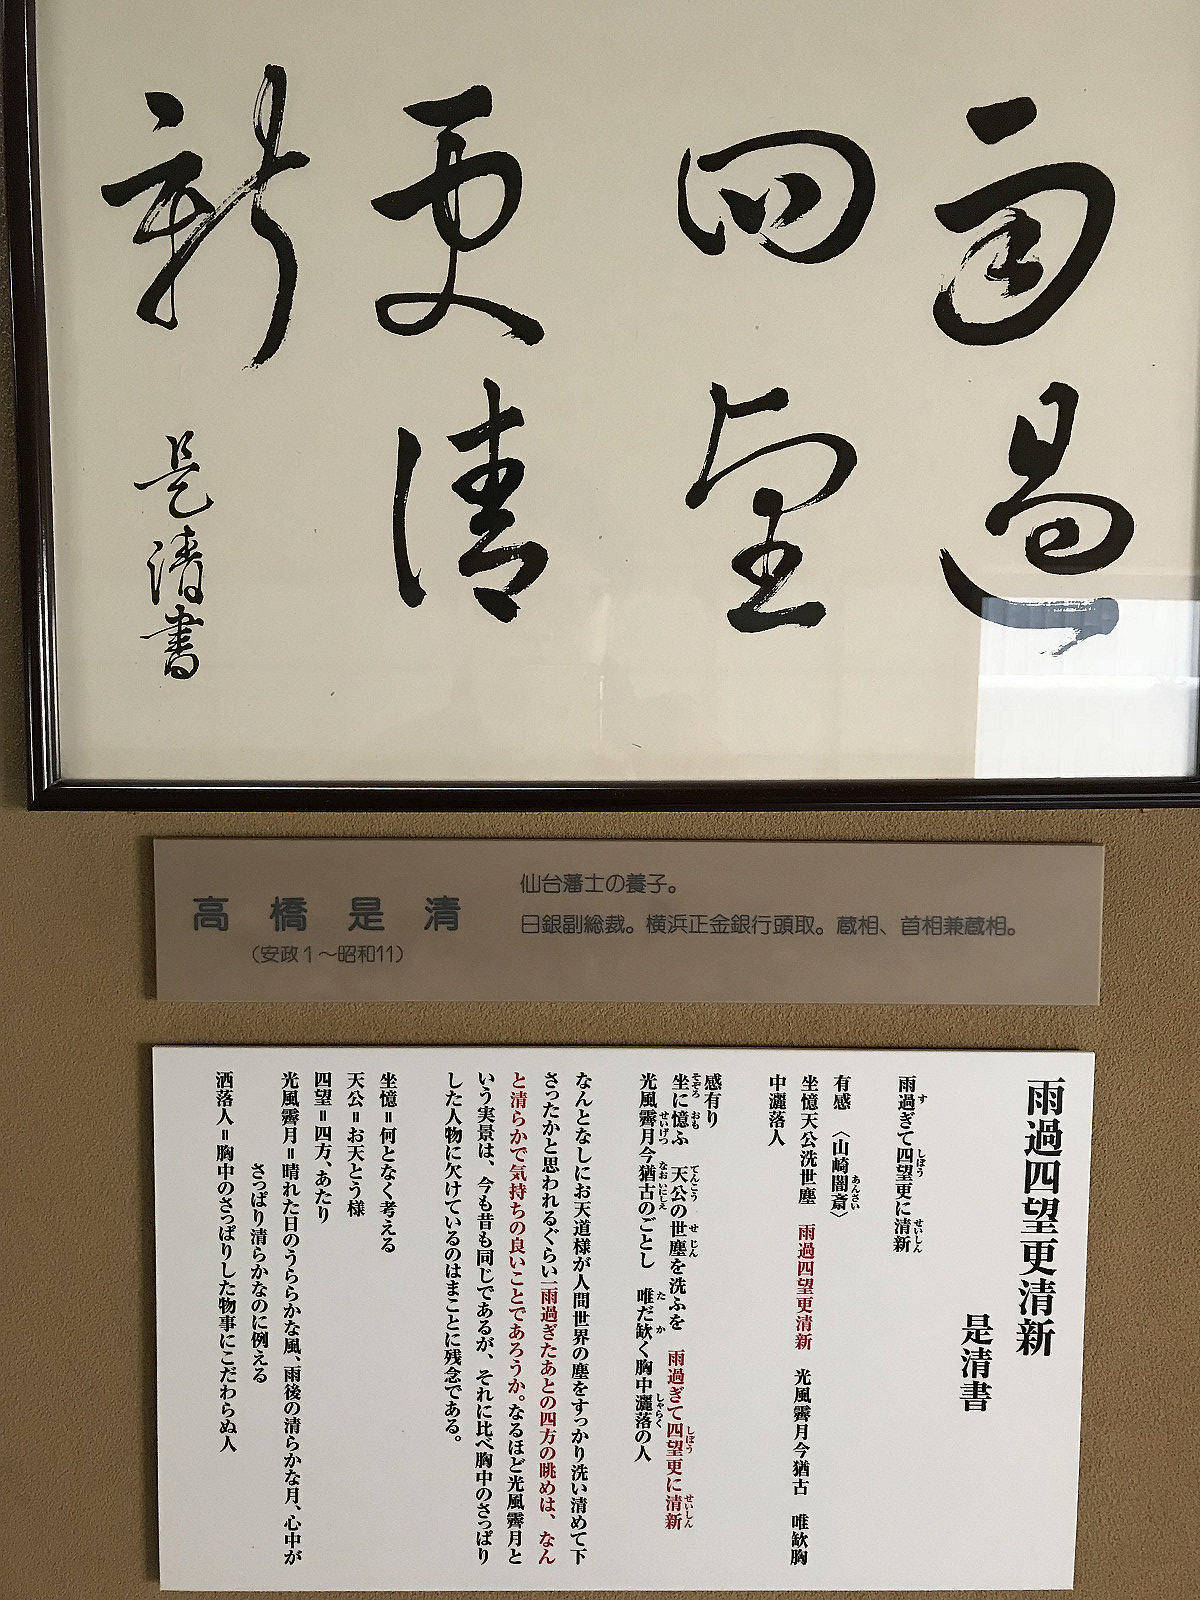 雨過
四望
更清
新
是清書
高橋是清
（安政1〜昭和11）
仙台藩士の養子。
日銀副総裁。横浜正金銀行頭取。蔵相、首相兼蔵相。
雨過四望更清新
是清書
雨過ぎて四望更に清新
す
しぼう
せいしん
有感 〈山崎闇斎〉
あんさい
坐憶天公洗世塵 雨過四望更清新 光風霽月今猶古 唯欿胸
中灑落人
感有り
坐に憶ふ 天公の世塵を洗ふを 雨過ぎて四望更に清新
そぞろ
おも
てんこう
せ じん
しぼう
せいしん
光風霽月今猶古のごとし 唯だ欿く胸中灑落の人
せいげつ
なお いにしえ
た
か
しゃらく
なんとなしにお天道様が人間世界の塵をすっかり洗い清めて下
さったかと思われるぐらい雨過ぎたあとの四方の眺めは、なん
と清らかで気持ちの良いことであろうか。なるほど光風霽月と
いう実景は、今も昔も同じであるが、それに比べ胸中のさっぱり
した人物に欠けているのはまことに残念である。
坐憶＝何となく考える
天公＝お天とう様
四望＝四方、あたり
光風霽月＝晴れた日のうららかな風、雨後の清らかな月、心中が
さっぱり清らかなのに例える
洒落人＝胸中のさっぱりした物事にこだわらぬ人